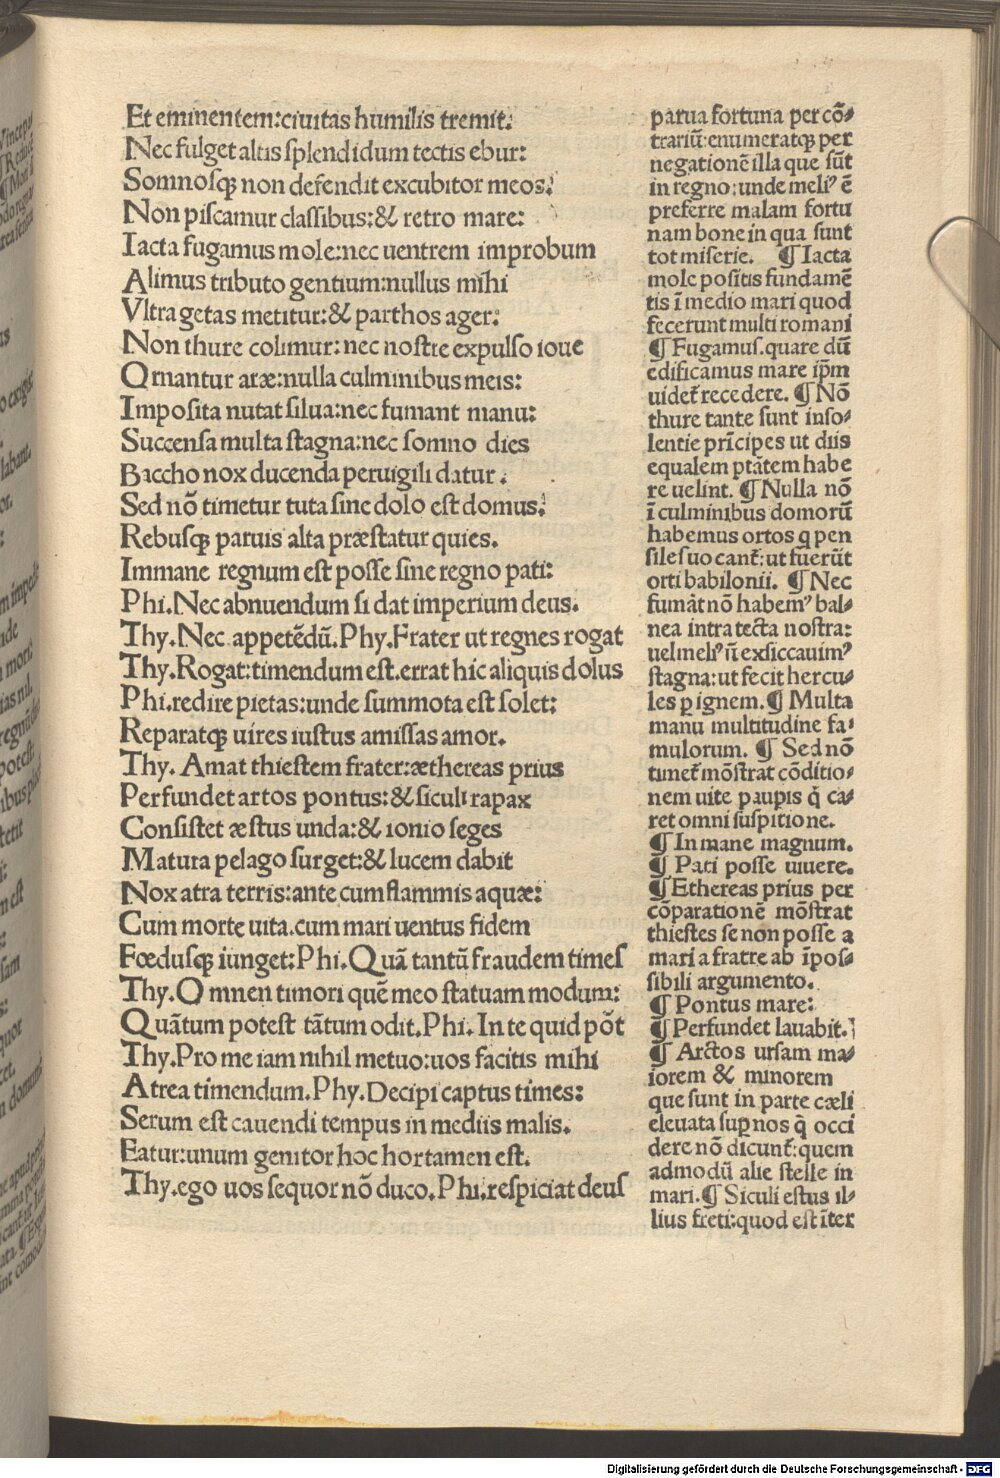 Et eminentem:ciuitas humilis tremit.
Nec fulget altis splendidum tectis ebur:
Somnosqꝫ non defendit excubitor meos.
Non piscamur classibus:& retro mare:
Iacta fugamus mole:nec uentrem improbum
Alimus tributo gentium:nullus mihi
Vltra getas metitur:& parthos ager:
Non thure colimur:nec nostre expulso ioue
Ornantur aræ:nulla culminibus meis:
Imposita nutat silua:nec fumant manu:
Succensa multa stagna:nec somno dies
Baccho nox ducenda peruigili datur.
Sed nõ timetur tuta sine dolo est domus.
Rebusqꝫ paruis alta præstatur quies.
Immane regnum est posse sine regno pati:
Phi.Nec abnuendum si dat imperium deus.
Thy.Nec appetẽdũ.Phy.Frater ut regnes rogat
Thy.Rogat:timendum est.errat hic aliquis dolus
Phi.redire pietas:unde summota est solet:
Reparatqꝫ uires iustus amissas amor.
Thy. Amat thiestem frater:æthereas prius
Perfundet artos pontus:& siculi rapax
Consistet æstus unda:& ionio seges
Matura pelago surget:& lucem dabit
Nox atra terris:ante cum flammis aquæ:
Cum morte uita.cum mari uentus fidem
Fœdusqꝫ iunget:Phi.Quã tantũ fraudem times
Thy.Omnen timori quẽ meo statuam modum:
Quãtum potest tãtum odit.Phi. In te quid põt
Thy.Pro me iam nihil metuo:uos facitis mihi
Atrea timendum.Phy.Decipi captus times:
Serum est cauendi tempus in mediis malis.
Eatur:unum genitor hoc hortamen est.
Thy.ego uos sequor nõ duco.Phi.respiciat deus
parua fortuna per cõ-
trariũ:enumeratqꝫ per
negationẽ illa que sũt
in regno:unde meliꝰ ẽ
preferre malam fortu
nam bone in qua sunt
tot miserie. ¶ Iacta
mole positis fundamẽ
tis ĩ medio mari quod
fecerunt multi romani
¶ Fugamus.quare dũ
edificamus mare ip̃m
uidet̃ recedere. ¶ Nõ
thure tante sunt inso-
lentie prĩcipes ut diis
equalem ptãtem habe
re uelint. ¶ Nulla nõ
ĩ culminibus domorũ
habemus ortos q pen
sile suo cant̃:ut fuerũt
orti babilonii. ¶ Nec
fumãt nõ habemꝰ bal-
nea intra tecta nostra:
uel meliꝰ ñ exsiccauimꝰ
stagna:ut fecit hercu-
les ꝑ ignem.¶ Multa
manu multitudine fa-
mulorum. ¶ Sed nõ
timet̃ mõstrat cõditio-
nem uite paupis q̃ ca-
ret omni suspitione.
¶ In mane magnum.
¶ Pati posse uiuere.
¶ Ethereas prius per
cõparationẽ mõstrat
thiestes se non posse a
mari a fratre ab ĩpos-
sibili argumento.
¶ Pontus mare:
¶ Perfundet lauabit.
¶ Arctos ursam ma-
iorem & minorem
que sunt in parte cæli
eleuata suꝑ nos q̃ occi
dere nõ dicunt̃:quem
admodũ alie stelle in
mari.¶ Siculi estus il-
lius freti:quod est ĩter
Digitalisierung gefördert durch die Deutsche Forschungsgemeinschaft - DFG